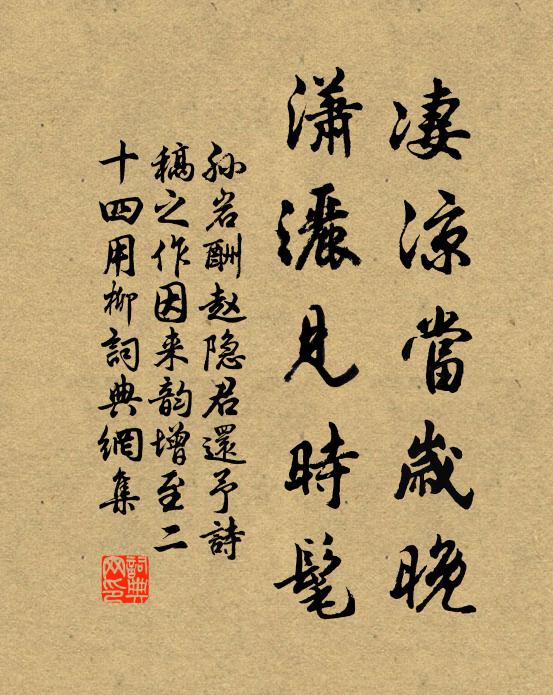 凄凉當歲晚
瀟灑見時髦
孙岩酬赵隐君還予詩
稿之作因来韵增至二
十四用柳詞典網集
詞典网印